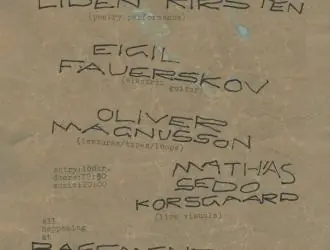 LIDEN KIRSTEN
(poetry performance)
EIGIL
FAUERSKOV
(electric guitar)
OLIVER
MAGNUSSON
(textures/tapes/loops)
entry:100kr.
doors:19:30
music:20:00
MATHIAS
SEDO
KORSGAARD
(live visuals)
all
happening
at
BASEMENT